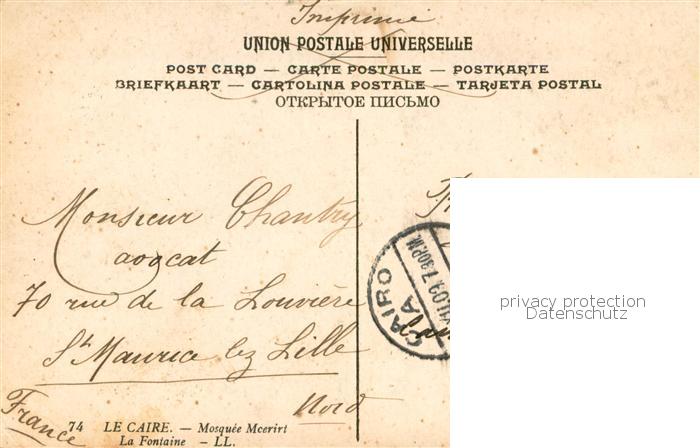 Imprimé
UNION POSTALE UNIVERSELLE
POST CARD — CARTE POSTALE — POSTKARTE
BRIEFKAART — CARTOLINA POSTALE — TARJETA POSTAL
ОТКРЫТОЕ ПИСЬМО
Monsieur Chantry
avocat
70 rue de la Louvière
St Maurice lez Lille
Nord
France
CAIRO
VII.09.7.30PM.
privacy protection
Datenschutz
74 LE CAIRE. — Mosquée Mcerirt
La Fontaine — LL.